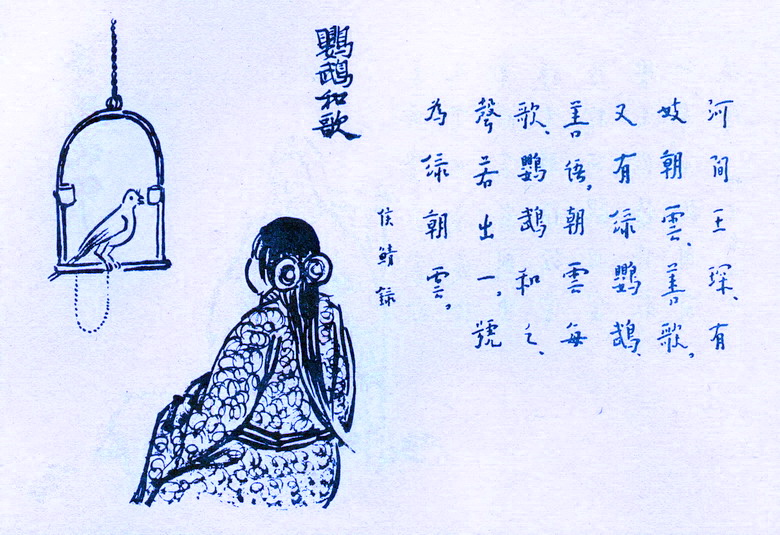 鸚鵡和歌
河間王琛、有
妓朝雲、善歌。
又有绿鸚鵡、
善语。朝雲每
歌、鸚鵡和之、
聲若出一。號
為绿朝雲。
侯鯖録